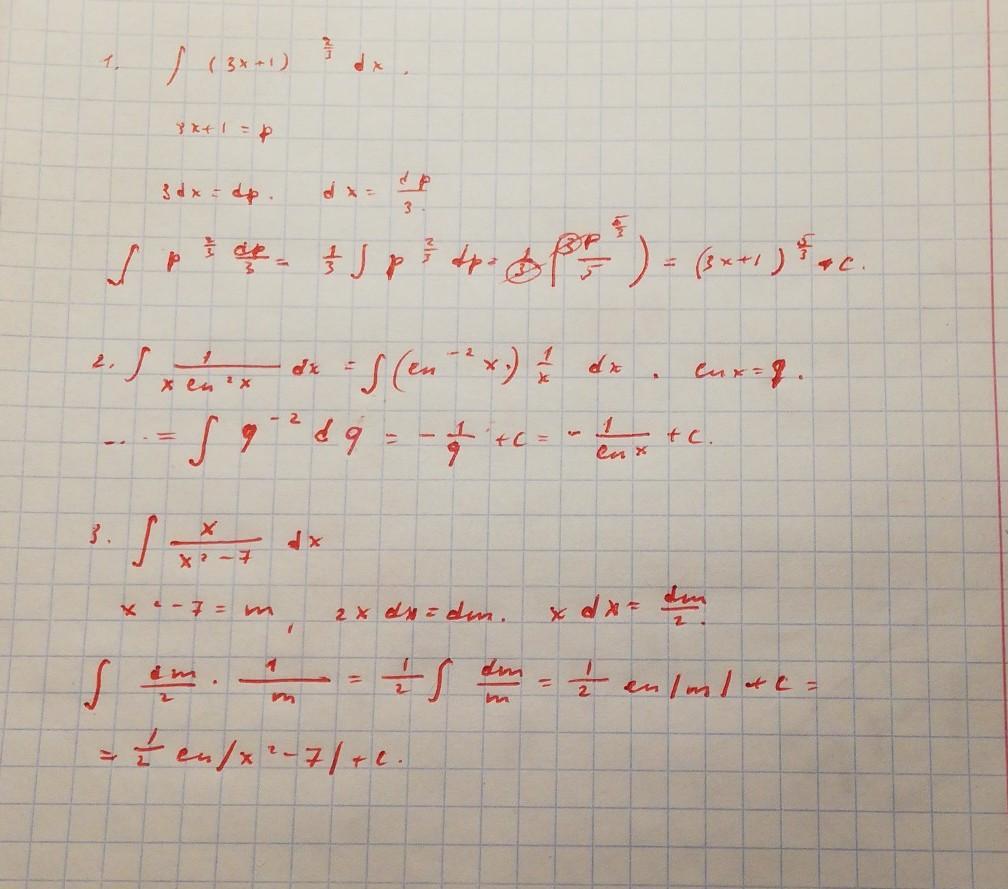 1. ∫ (3x+1)^(2/3) dx.
3x+1 = p
3dx = dp. dx = dp/3.
∫ p^(2/3) dp/3 = 1/3 ∫ p^(2/3) dp = 1/3 (3p^(5/3)/5) = (3x+1)^(5/3) + c.
2. ∫ 1/(x ln²x) dx = ∫ (ln⁻²x·) 1/x dx. ln x = q.
... = ∫ q⁻² dq = -1/q + c = -1/(ln x) + c.
3. ∫ x/(x²-7) dx
x²-7 = m, 2x dx = dm. x dx = dm/2.
∫ dm/2 · 1/m = 1/2 ∫ dm/m = 1/2 ln|m| + c =
= 1/2 ln|x²-7| + c.